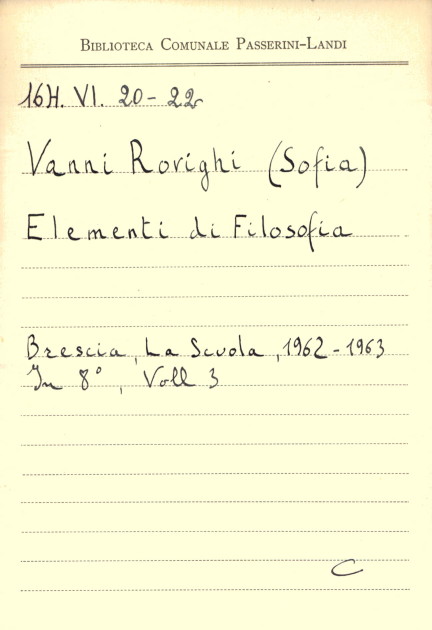 BIBLIOTECA COMUNALE PASSERINI-LANDI
16H. VI. 20 - 22
Vanni Rovighi (Sofia)
Elementi di Filosofia
Brescia, La Scuola, 1962 - 1963
In 8°, Voll 3
C